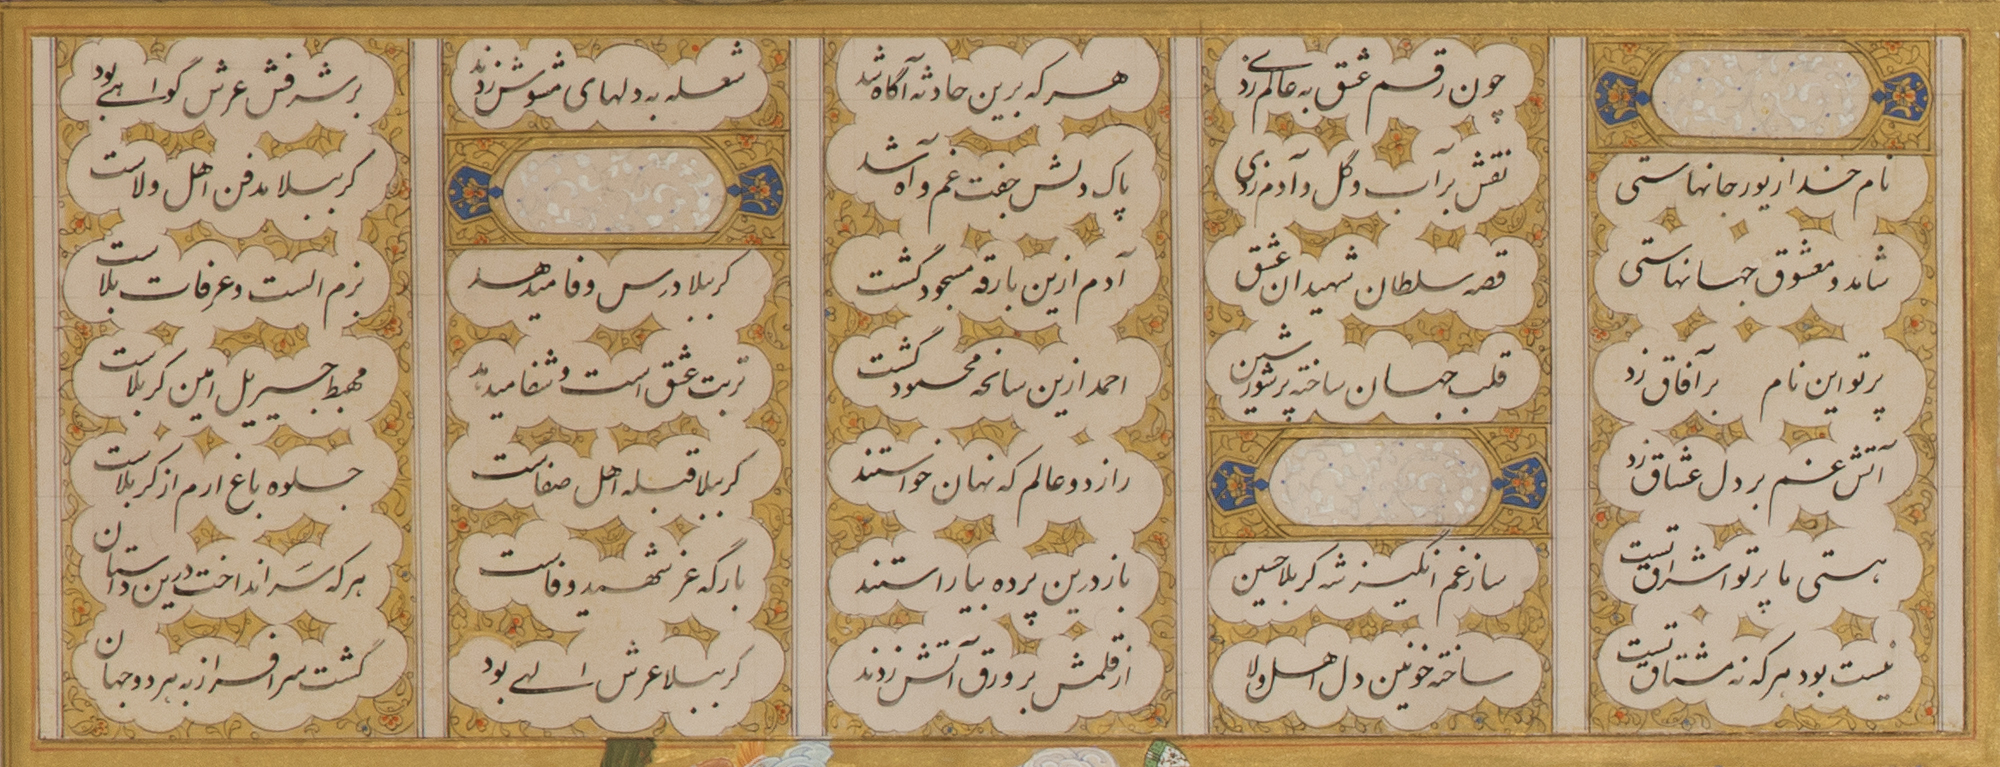 نام خدا زیور جانهاستی
شاهد و معشوق جهانهاستی
پرتو این نام بر آفاق زد
آتش غم بر دل عشاق زد
هستی ما پرتو اشراق تست
نیست بود هر که نه مشتاق تست
چون رقم عشق به عالم زدی
نقش بر آب و گل و آدم زدی
قصه سلطان شهیدان عشق
قلب جهان ساخته پر شور
ساز غم انگیز شه کربلا حسین
ساخته خونین دل اهل ولا
هر که برین حادثه آگاه شد
پاک دلش جفت غم و آه شد
آدم ازین بارقه مسجود گشت
احمد ازین سانحه محمود گشت
راز دو عالم که نهان خواستند
باز درین پرده بیاراستند
از قلمش بر ورق آتش زدند
شعله به دلهای مشوش زدند
کربلا درس وفا میدهد
تربت عشق است و شفا میدهد
کربلا قبله اهل صفاست
بارگه عز شهید وفاست
کربلا عرش الهی بود
بر شرفش عرش گواهی بود
کربلا مدفن اهل ولاست
بزم الست و عرفات بلاست
مهبط جبریل امین کربلاست
جلوه باغ ارم از کربلاست
هر که سر انداخت درین داستان
گشت سرافراز به هر دو جهان